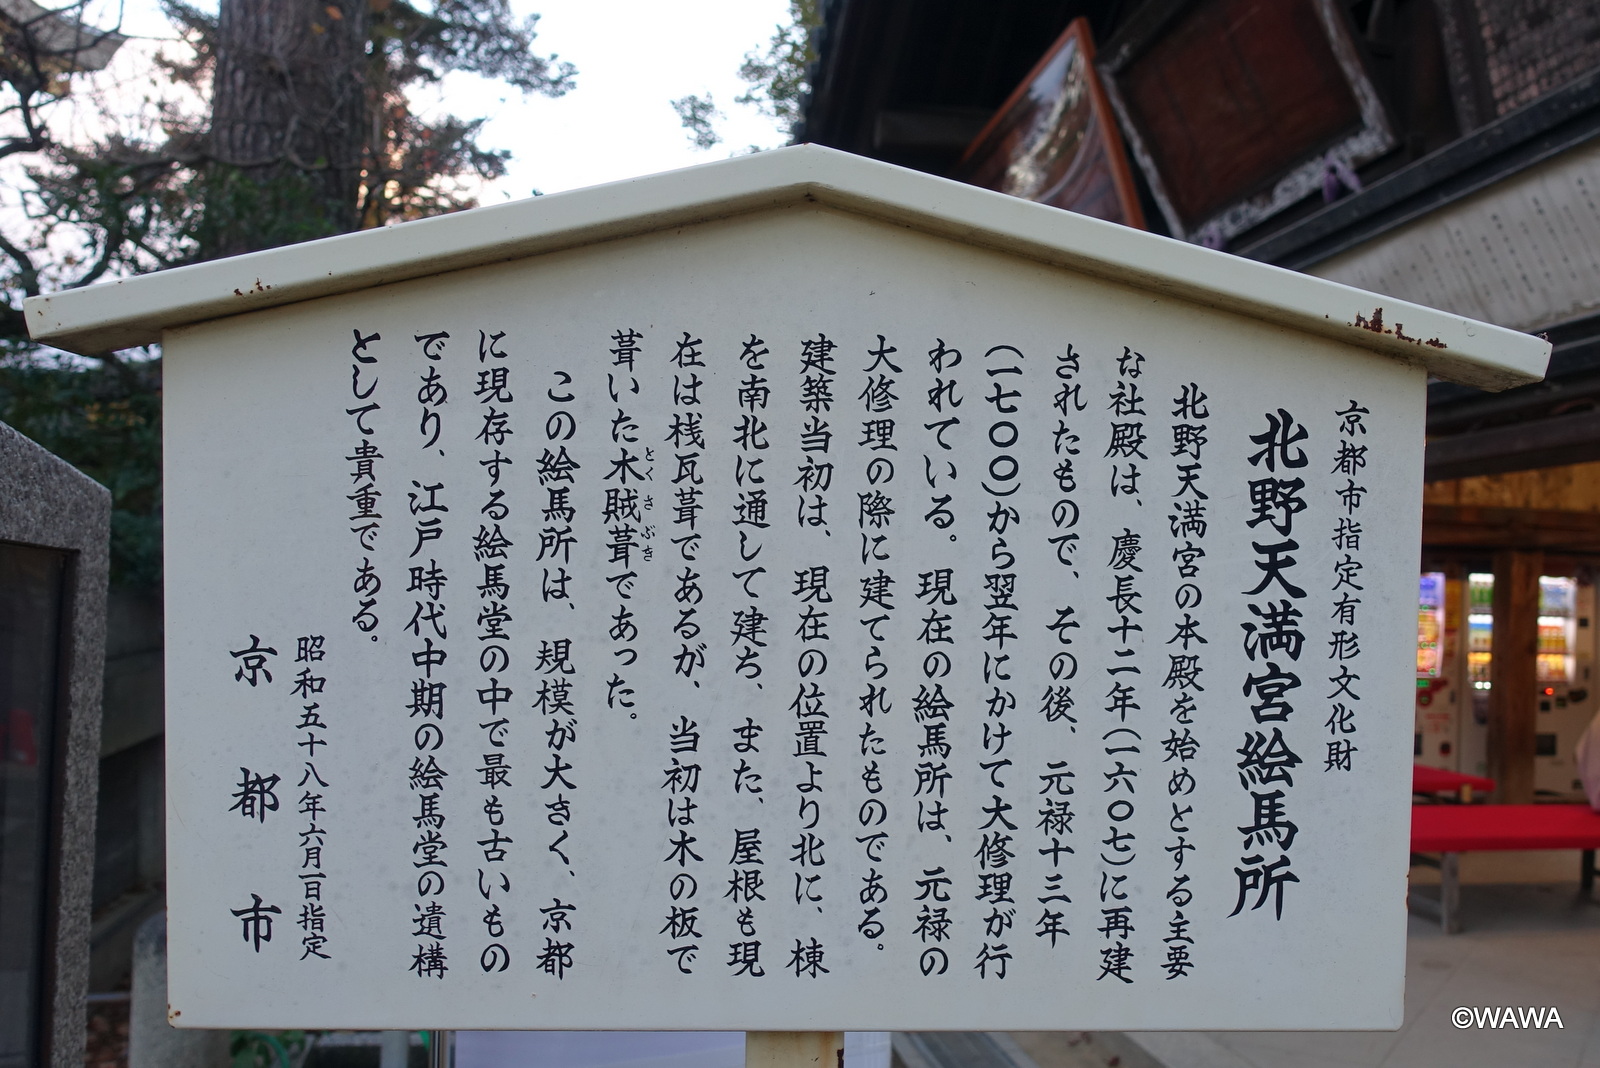 京都市指定有形文化財
北野天満宮絵馬所
北野天満宮の本殿を始めとする主要
な社殿は、慶長十二年(一六〇七)に再建
されたもので、その後、元禄十三年
(一七〇〇)から翌年にかけて大修理が行
われている。現在の絵馬所は、元禄の
大修理の際に建てられたものである。
建築当初は、現在の位置より北に、棟
を南北に通して建ち、また、屋根も現
在は桟瓦葺であるが、当初は木の板で
葺いた木賊葺であった。
とくさぶき
この絵馬所は、規模が大きく、京都
に現存する絵馬堂の中で最も古いもの
であり、江戸時代中期の絵馬堂の遺構
として貴重である。
昭和五十八年六月一日指定
京都市
©WAWA